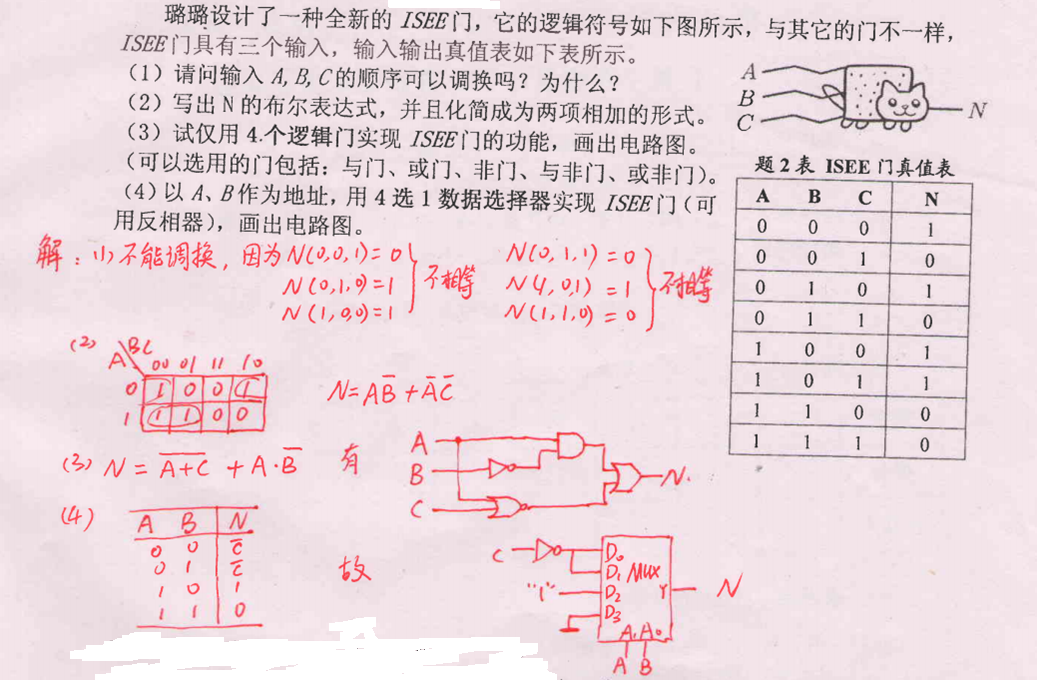 璐璐设计了一种全新的 ISEE 门，它的逻辑符号如下图所示，与其它的门不一样，
ISEE 门具有三个输入，输入输出真值表如下表所示。
（1）请问输入 A, B, C 的顺序可以调换吗？为什么？
（2）写出 N 的布尔表达式，并且化简成为两项相加的形式。
（3）试仅用 4.个逻辑门实现 ISEE 门的功能，画出电路图。
（可以选用的门包括：与门、或门、非门、与非门、或非门）。
（4）以 A、B 作为地址，用 4 选 1 数据选择器实现 ISEE 门（可
用反相器），画出电路图。
A
B
C
N
题 2 表 ISEE 门真值表
A B C N
0 0 0 1
0 0 1 0
0 1 0 1
0 1 1 0
1 0 0 1
1 0 1 1
1 1 0 0
1 1 1 0
解：(1) 不能调换，因为 N(0,0,1)=0
N(0,1,0)=1
N(1,0,0)=1
不相等
N(0,1,1)=0
N(1,0,1)=1
N(1,1,0)=0
不相等
(2) A BC 00 01 11 10
0 1 0 0 1
1 1 1 0 0
N=AB̅+A̅C̅
(3) N = \overline{A+C} + A·B̅ 有
A
B
C
N.
(4) A B N
0 0 C̅
0 1 C̅
1 0 1
1 1 0
故
C
"1"
D₀
D₁ MUX
D₂ Y
D₃
A₁ A₀
A B
N